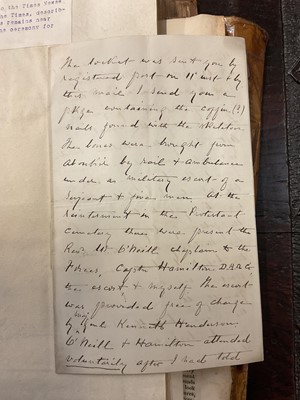 o, the Times Weekl
The Times, describ-
s remains near
he Governor for
The locket was sent you by
registered post on 11th inst & by
this mail I send you a
pkge containing the coffin (?)
nails found with the skeleton.
The bones were brought from
by rail & ambulance
under a military escort of a
Sergeant & four men. At the
reinterment in the Protestant
Cemetery there was present the
Revd. W. O'Neill, chaplain to the
Forces, Captn Hamilton
the escort & myself. The escort
was provided free of charge
by Major Kenneth Henderson
O'Neill & Hamilton attended
voluntarily after I had told